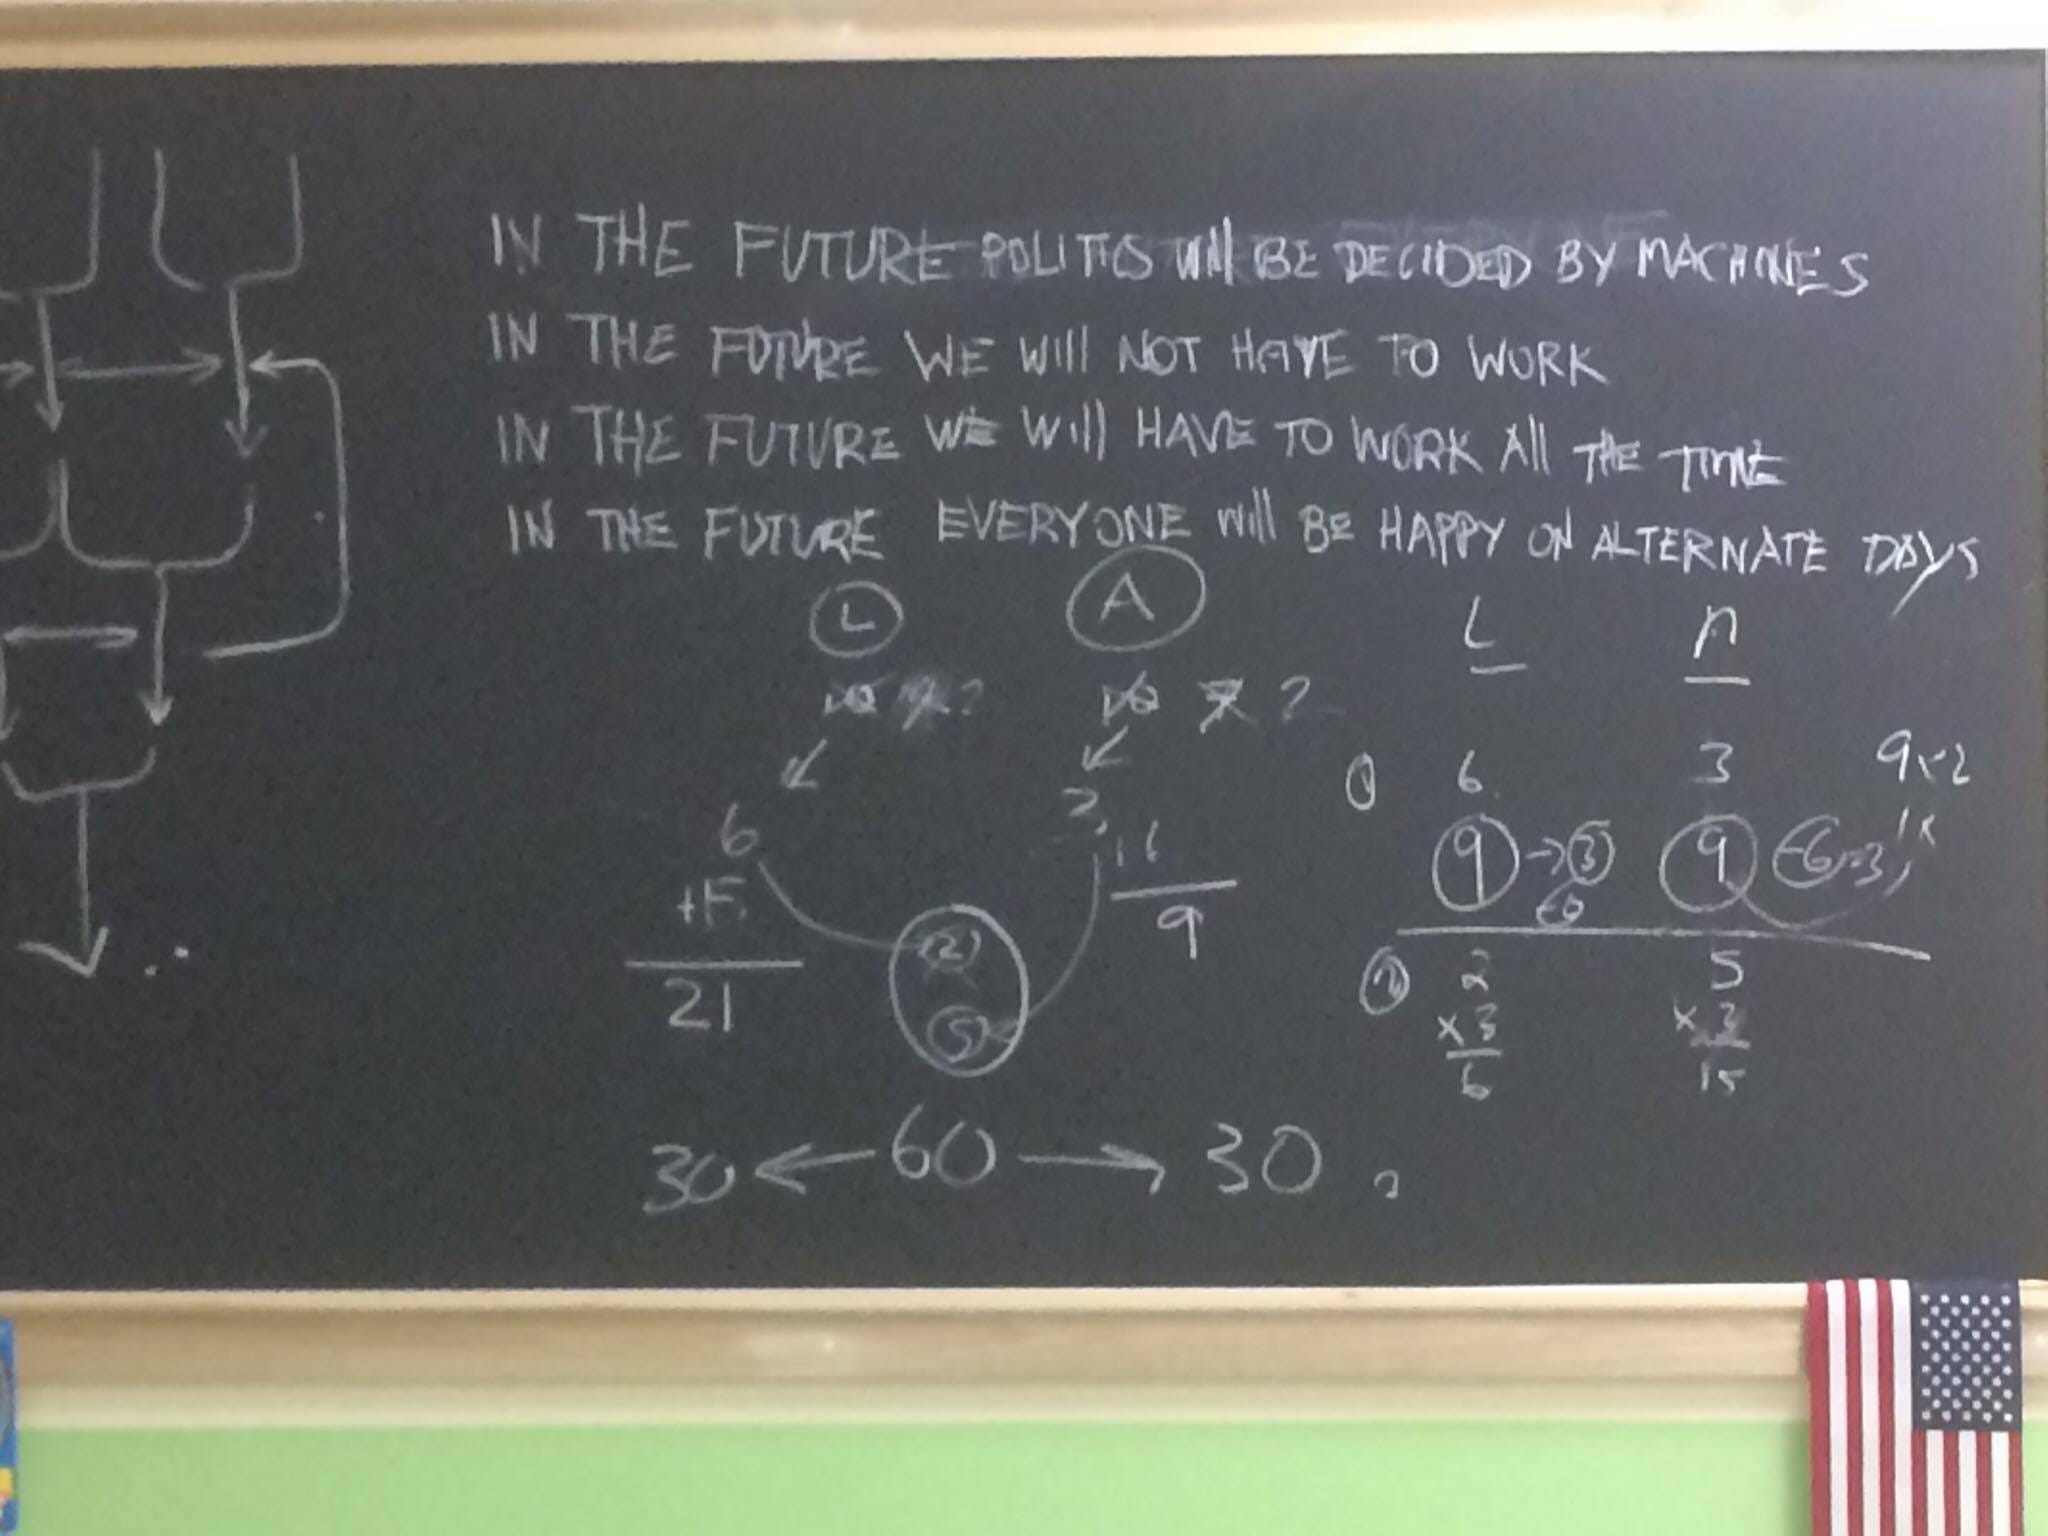 IN THE FUTURE POLITICS Will BE DECIDED BY MACHINES
IN THE FUTURE WE Will NOT HAVE TO WORK
IN THE FUTURE WE Will HAVE TO WORK All THE TIME
IN THE FUTURE EVERYONE Will BE HAPPY ON ALTERNATE DAYS
L A
L A
? ?
6 3
1 6 3 9x2
+F 9 → 3 9
21 9
2 2 5
x3 x3
6 15
5
30 ← 60 → 30